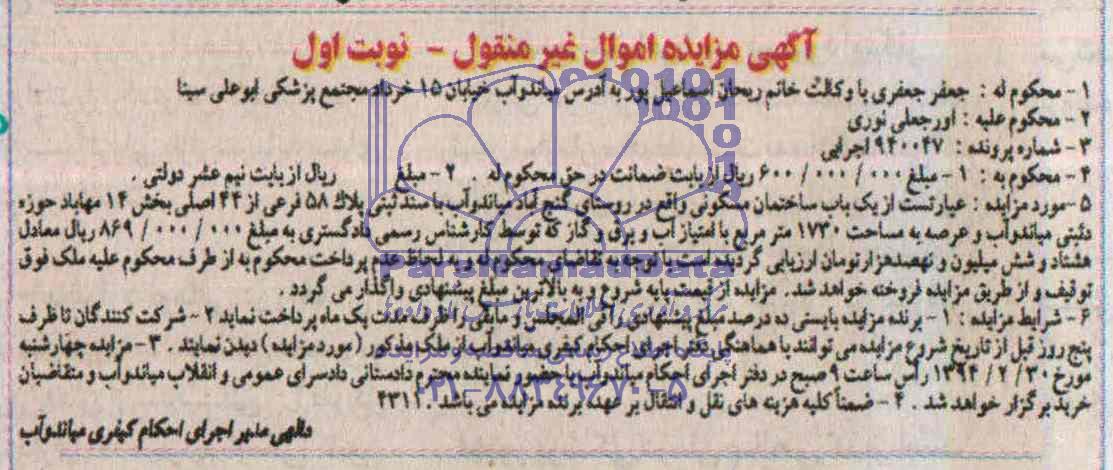 آگهی مزایده اموال غیر منقول - نوبت اول
۱- محکوم له : جعفر جعفری با وکالت خانم ریحان اسماعیل پور به آدرس میاندوآب خیابان ۱۵ خرداد مجتمع پزشکی ابوعلی سینا
۲- محکوم علیه : اورجعلی نوری
۳- شماره پرونده : ۹۴۰۰۴۷ اجرایی
۴- محکوم به : ۱- مبلغ ۶۰۰/۰۰۰/۰۰۰ ریال از بابت ضمانت در حق محکوم له . ۲- مبلغ ریال از بابت نیم عشر دولتی .
۵- مورد مزایده : عبارتست از یک باب ساختمان مسکونی واقع در روستای گنج آباد میاندوآب با سند ثبتی پلاک ۵۸ فرعی از ۴۴ اصلی بخش ۱۴ مهاباد حوزه
دئبتی میاندوآب و عرصه به مساحت ۱۷۳۰ متر مربع با امتیاز آب و برق و گاز که توسط کارشناس رسمی دادگستری به مبلغ ۸۶۹/۰۰۰/۰۰۰ ریال معادل
هشتاد و شش میلیون و نهصد هزار تومان ارزیابی گردیده است با توجه به تقاضای محکوم له و به لحاظ عدم پرداخت محکوم به از طرف محکوم علیه ملک فوق
توقیف و از طریق مزایده فروخته خواهد شد . مزایده از قیمت پایه شروع و به بالاترین مبلغ پیشنهادی واگذار می گردد .
۶- شرایط مزایده : ۱- برنده مزایده بایستی ده درصد مبلغ پیشنهادی را فی المجلس و مابقی را ظرف مدت یک ماه پرداخت نماید ۲- شرکت کنندگان تا ظرف
پنج روز قبل از تاریخ شروع مزایده می توانند با هماهنگی دفتر اجرای احکام کیفری میاندوآب از ملک مذکور ( مورد مزایده ) دیدن نمایند . ۳- مزایده چهارشنبه
مورخ ۱۳۹۴/۲/۳۰ رأس ساعت ۹ صبح در دفتر اجرای احکام میاندوآب با حضور نماینده محترم دادستانی دادسرای عمومی و انقلاب میاندوآب و متقاضیان
خرید برگزار خواهد شد . ۴- ضمناً کلیه هزینه های نقل و انتقال بر عهده برنده مزایده می باشد . ۴۳۱۱
دالهی مدیر اجرای احکام کیفری میاندوآب
ParsNamadData
۰۲۱-۸۸۳۴۹۶۷۰-۵